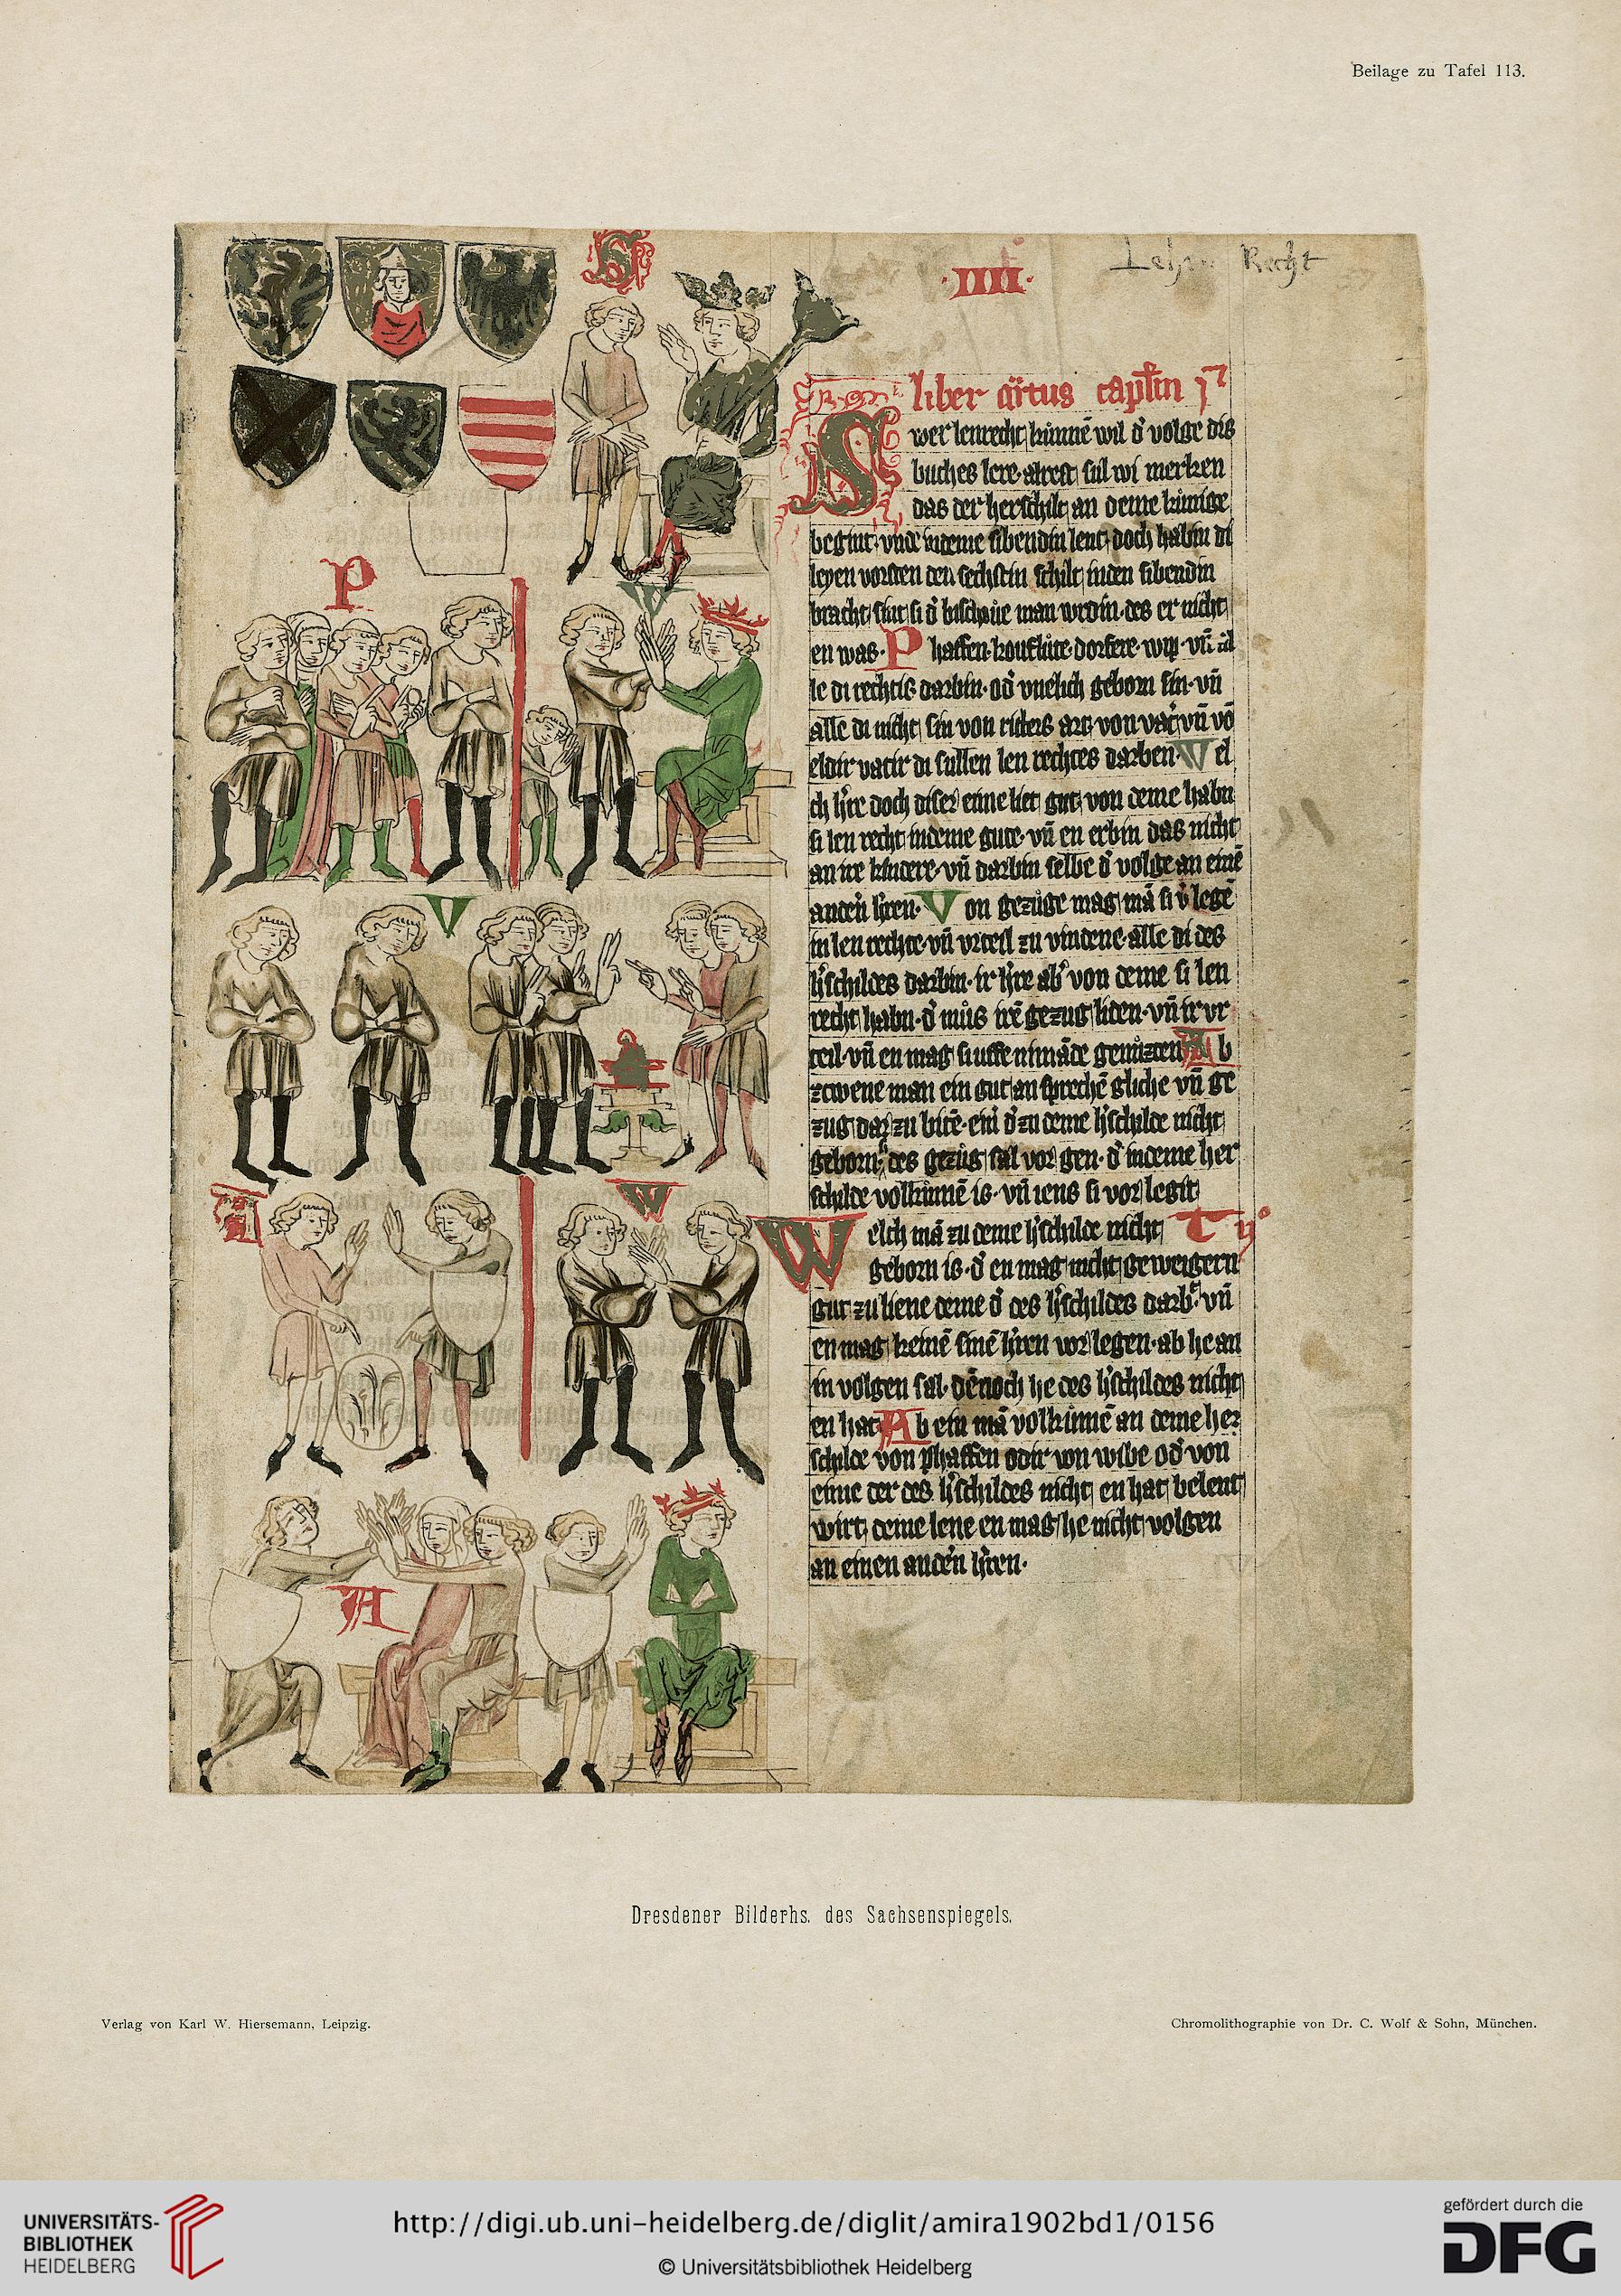 Beilage zu Tafel 113.
Lehn Recht
·IIII·
S
liber q̈rtus capl̄m j
Swer lenrecht kunnē wil d' volge dis
buches lere· alrest sul wi merken
das der herschilt an deme kunige
begint· vnde indeme sibendin lent· doch habin di
leyen vorsten den sechstin schilt inden sibendin
bracht sint si d' bischoue man wrdin· des er nicht
en was· Phaffen· koufluite· dorfere· wip· vn̄ al
le di rechtis darbin· od' vnelich geborn sin· vn̄
alle di nicht sin von riters art· von vat' vn̄ vō
eldir vatir di sullen len rechtes darben· Wel
ch h're doch diser eime liet gut· von deme habn
si len recht indeme gute· vn̄ en erbin das nicht
an ire kindere· vn̄ darbin selbe d' volge an eine
anden h'ren· Von gezuge mag mā si v'legē
in len rechte· vn̄ vrteil zu vindene· alle di des
h'schildes darbin· ir h're ab' von deme si len
recht habn· d' mus irē gezug liden· vn̄ ir vr
teil· vn̄ en mag si uffe nimāde genutzen Ab
zcwene man ein gut an sprechē gliche vn̄ ge
zug dar zu bitē· ein' d' zu deme h'schilde nicht
geborn· des gezug sal vor gen· d' indeme her
schilde volkumē is· vn̄ iens si vor legit
Welch mā zu deme h'schilde nicht
geborn is· d' en mag nicht geweigern
gut zu liene deme d' des h'schildes darb't· vn̄
en mag keinē sinē h'ren vor legen· ab he an
in volgen sal· dēnoch he des h'schildes nicht
en hat Ab ein mā volkumē an deme her
schilde von phaffen odir von wibe od' von
eime der des h'schildes nicht en hat belent
wirt· deme lene en mag he nicht volgen
an einen anden h'ren·
P
W
V
A
W
A
Dresdener Bilderhs. des Sachsenspiegels.
Verlag von Karl W. Hiersemann, Leipzig.
Chromolithographie von Dr. C. Wolf & Sohn, München.
UNIVERSITÄTS-
BIBLIOTHEK
HEIDELBERG
http://digi.ub.uni-heidelberg.de/diglit/amira1902bd1/0156
© Universitätsbibliothek Heidelberg
gefördert durch die
DFG